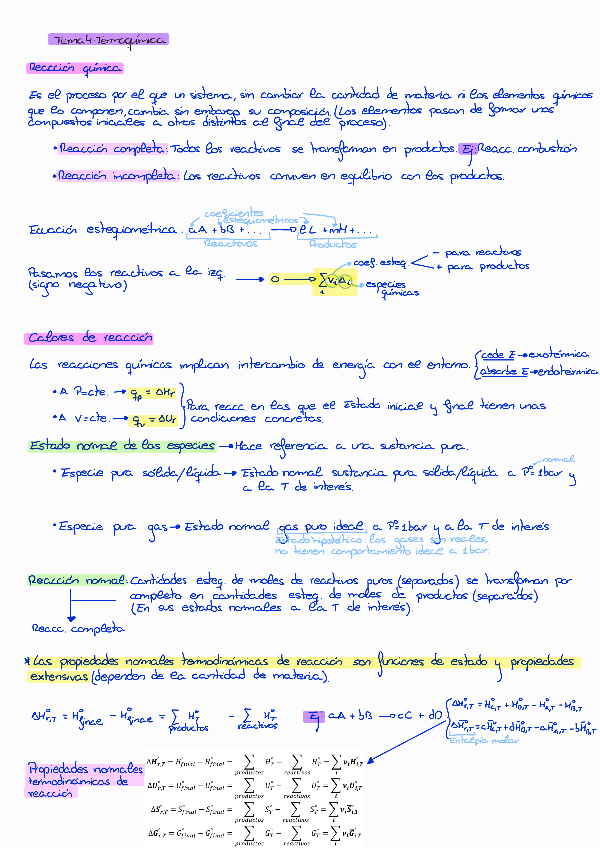 Tema 4. Termoquímica
Reacción química
Es el proceso por el que un sistema, sin cambiar la cantidad de materia ni los elementos químicos
que lo componen, cambia sin embargo su composición. (Los elementos pasan de formar unos
compuestos iniciales a otros distintos al final del proceso).
• Reacción completa: Todos los reactivos se transforman en productos. Ej Reacc. combustión
• Reacción incompleta: Los reactivos conviven en equilibrio con los productos.
coeficientes
estequiométricos
Ecuación estequiométrica. aA + bB + ... → lL + mM + ...
Reactivos Productos
Pasamos los reactivos a la izq. (signo negativo) → 0 → Σ_i ν_i A_i
coef. esteq. – para reactivos
+ para productos
especies químicas
Calores de reacción
Las reacciones químicas implican intercambio de energía con el entorno. cede E → exotérmica
absorbe E → endotérmica
• A P=cte. → q_p = ΔH_r
• A V=cte. → q_v = ΔU_r
Para reacc. en las que el Estado inicial y final tienen unas
condiciones concretas.
Estado normal de las especies → Hace referencia a una sustancia pura.
normal
• Especie pura sólida/líquida → Estado normal sustancia pura sólida/líquida a P°=1bar y
a la T de interés.
• Especie pura gas → Estado normal gas puro ideal a P°=1bar y a la T de interés
Estado hipotético: los gases son reales,
no tienen comportamiento ideal a 1bar.
Reacción normal: Cantidades esteq. de moles de reactivos puros (separados) se transforman por
completo en cantidades esteq. de moles de productos (separados)
(En sus estados normales a la T de interés).
Reacc. completa
* Las propiedades normales termodinámicas de reacción son funciones de estado y propiedades
extensivas (dependen de la cantidad de materia).
ΔH°_r,T = H°_final − H°_final = Σ_productos H°_T − Σ_reactivos H°_T Ej aA + bB → cC + dD
ΔH°_r,T = H°_C,T + H°_D,T − H°_A,T − H°_B,T
ΔH°_r,T = cH̄°_C,T + dH̄°_D,T − aH̄°_A,T − bH̄°_B,T
Entalpía molar
Propiedades normales
termodinámicas de
reacción
ΔH°_r,T = H°_final − H°_final = Σ_productos H°_T − Σ_reactivos H°_T = Σ_i ν_i H̄°_i,T
ΔU°_r,T = U°_final − U°_final = Σ_productos U°_T − Σ_reactivos U°_T = Σ_i ν_i Ū°_i,T
ΔS°_r,T = S°_final − S°_final = Σ_productos S°_T − Σ_reactivos S°_T = Σ_i ν_i S̄°_i,T
ΔG°_r,T = G°_final − G°_final = Σ_productos G°_T − Σ_reactivos G°_T = Σ_i ν_i Ḡ°_i,T